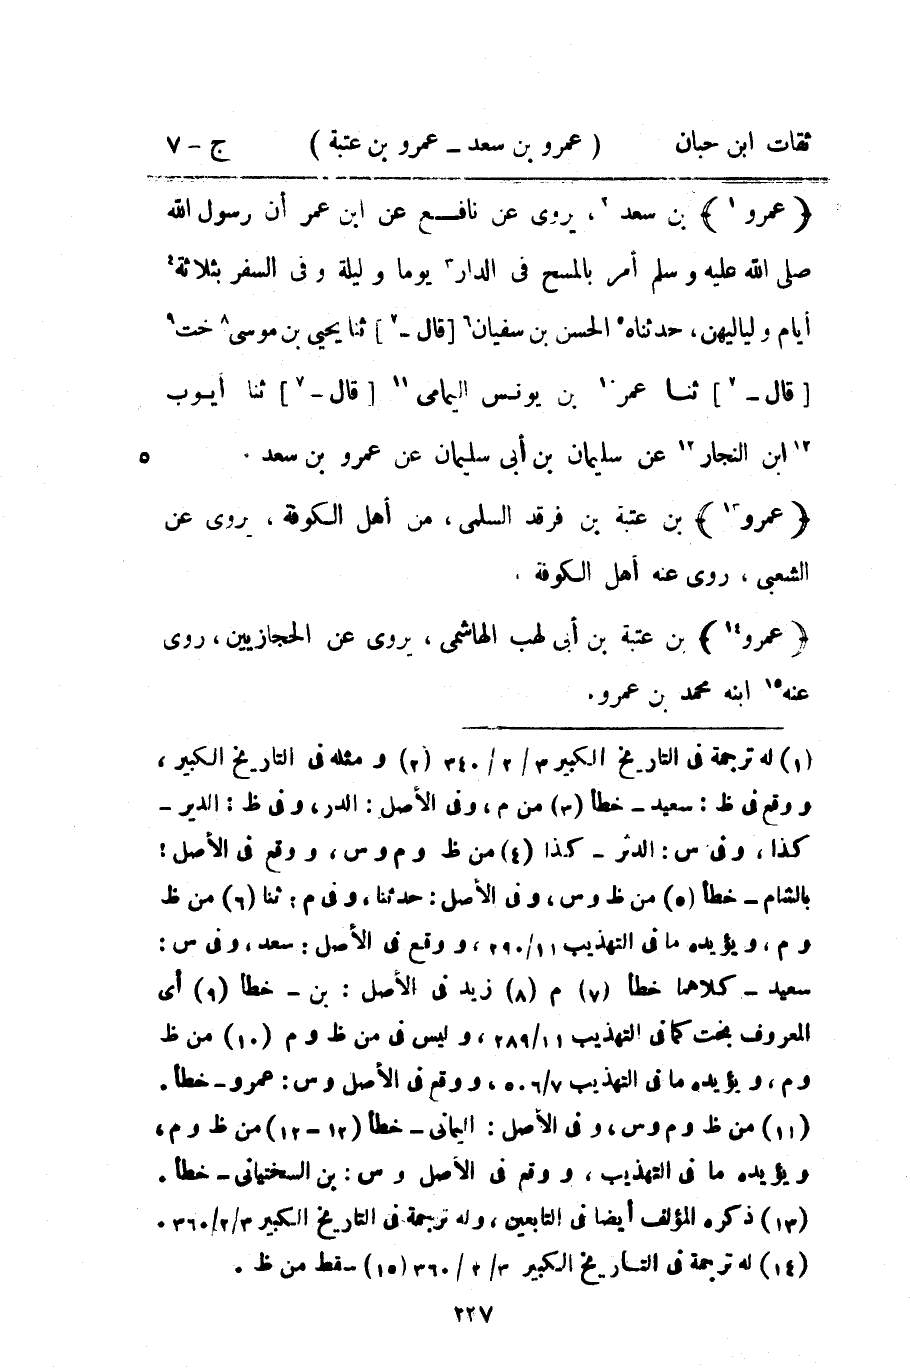 ثقات ابن حبان ( عمرو بن سعد ـ عمرو بن عتبة ) ج - ٧
﴿ عمرو ١ ﴾ بن سعد ٢ ، يروى عن نافع عن ابن عمر أن رسول الله
صلى الله عليه و سلم أمر بالمسح فى الدار ٣ يوما و ليلة و فى السفر بثلاثة ٤
أيام و لياليهن، حدثناه ٥ الحسن بن سفيان ٦ [قال ـ ٧ ] ثنا يحيى بن موسى ٨ خت ٩
[ قال ـ ٧ ] ثنا عمر ١٠ بن يونس اليمامى ١١ [ قال ـ ٧ ] ثنا أيوب
١٢ ابن النجار ١٢ عن سليمان بن أبى سليمان عن عمرو بن سعد . ٥
﴿ عمرو ١٣ ﴾ بن عتبة بن فرقد السلمى ، من أهل الكوفة ، يروى عن
الشعبى ، روى عنه أهل الكوفة .
﴿ عمرو ١٤ ﴾ بن عتبة بن أبى لهب الهاشمى ، يروى عن الحجازيين ، روى
عنه ١٥ ابنه محمد بن عمرو.
(١) له ترجمة فى التاريخ الكبير ٣/ ٢ / ٣٤٠ (٢) و مثله فى التاريخ الكبير ،
و وقع فى ظ : سعيد ـ خطأ (٣) من م ، وفى الأصل : الدر ، و فى ظ : الدير ـ
كذا ، و فى س : الدثر ـ كذا (٤) من ظ و م و س ، و وقع فى الأصل :
بالشام ـ خطأ (٥) من ظ و س ، و فى الأصل : حدثنا ، و فى م : ثنا (٦) من ظ
و م ، و يؤيده ما فى التهذيب ٢٩٠/١١ ، و وقع فى الأصل : سعد ، و فى س :
سعيد ـ كلاهما خطأ (٧) م (٨) زيد فى الأصل : بن ـ خطأ (٩) أى
المعروف بخت كما فى التهذيب ٢٨٩/١١ ، و ليس فى من ظ و م (١٠) من ظ
و م ، و يؤيده ما فى التهذيب ٥٠٦/٧ ، و وقع فى الأصل و س : عمرو ـ خطأ .
(١١) من ظ و م و س ، و فى الأصل : اليمانى ـ خطأ (١٢ ـ ١٢) من ظ و م ،
و يؤيده ما فى التهذيب ، و وقع فى الأصل و س : بن السختيانى ـ خطأ .
(١٣) ذكره المؤلف أيضا فى التابعين ، وله ترجمة فى التاريخ الكبير ٣٦٠/٢/٣ .
(١٤) له ترجمة فى التاريخ الكبير ٣/ ٢ / ٣٦٠ (١٥) سقط من ظ .
٢٢٧